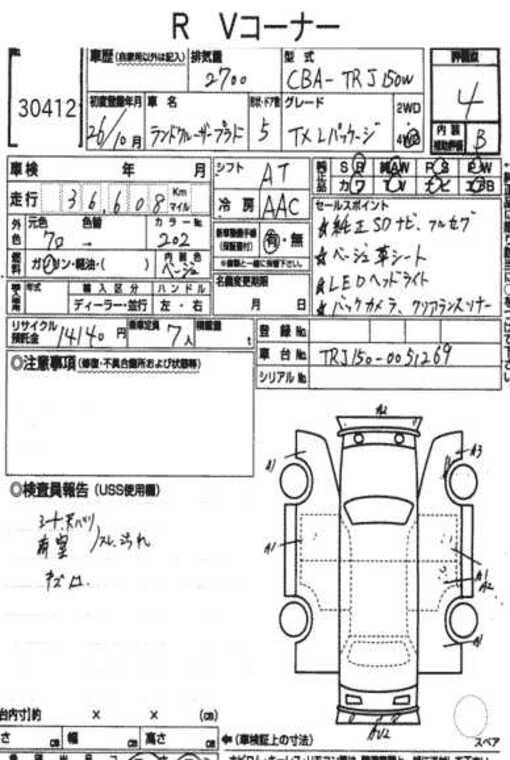 R Vコーナー
30412
車歴 (自家用以外は記入)
排気量
2700
型式
CBA-TRJ150W
評価点
4
初度登録年月
26/10月
車名
ランドクルーザープラド
形状・ドア数
5
グレード
TX Lパッケージ
2WD
4WD
内装
補助評価
B
車検 年 月
シフト
AT
純正品
S R 純 A W P S P W
カ ワ T V ナビ エ B
走行
36,608
Km
マイル
冷房
AAC
セールスポイント
★純正SDナビ、フルセグ
★ベージュ革シート
★LEDヘッドライト
★バックカメラ、クリアランスソナー
外色
元色 色替
クロ →
カラーNo.
202
新車整備手帳
(保証書付)
有・無
燃料
ガソリン・軽油・( )
内装色
ベージュ
名義変更期限
月 日
年式
輸入区分
ハンドル
ディーラー・並行
左・右
リサイクル
預託金
14140円
乗車定員
7人
積載量
t
登録No.
車台No.
TRJ150-0051269
シリアルNo.
◎注意事項 (修復・不具合箇所および状態等)
◎検査員報告 (USS使用欄)
シート、天バリ
荷室
スレ、汚れ
キズ
A2
A1
A3
A1
A1
A2
スペア
台内寸)約 × × (㎝)
さ (㎝) 幅 (㎝) 高さ (㎝)
←(車検証上の寸法)